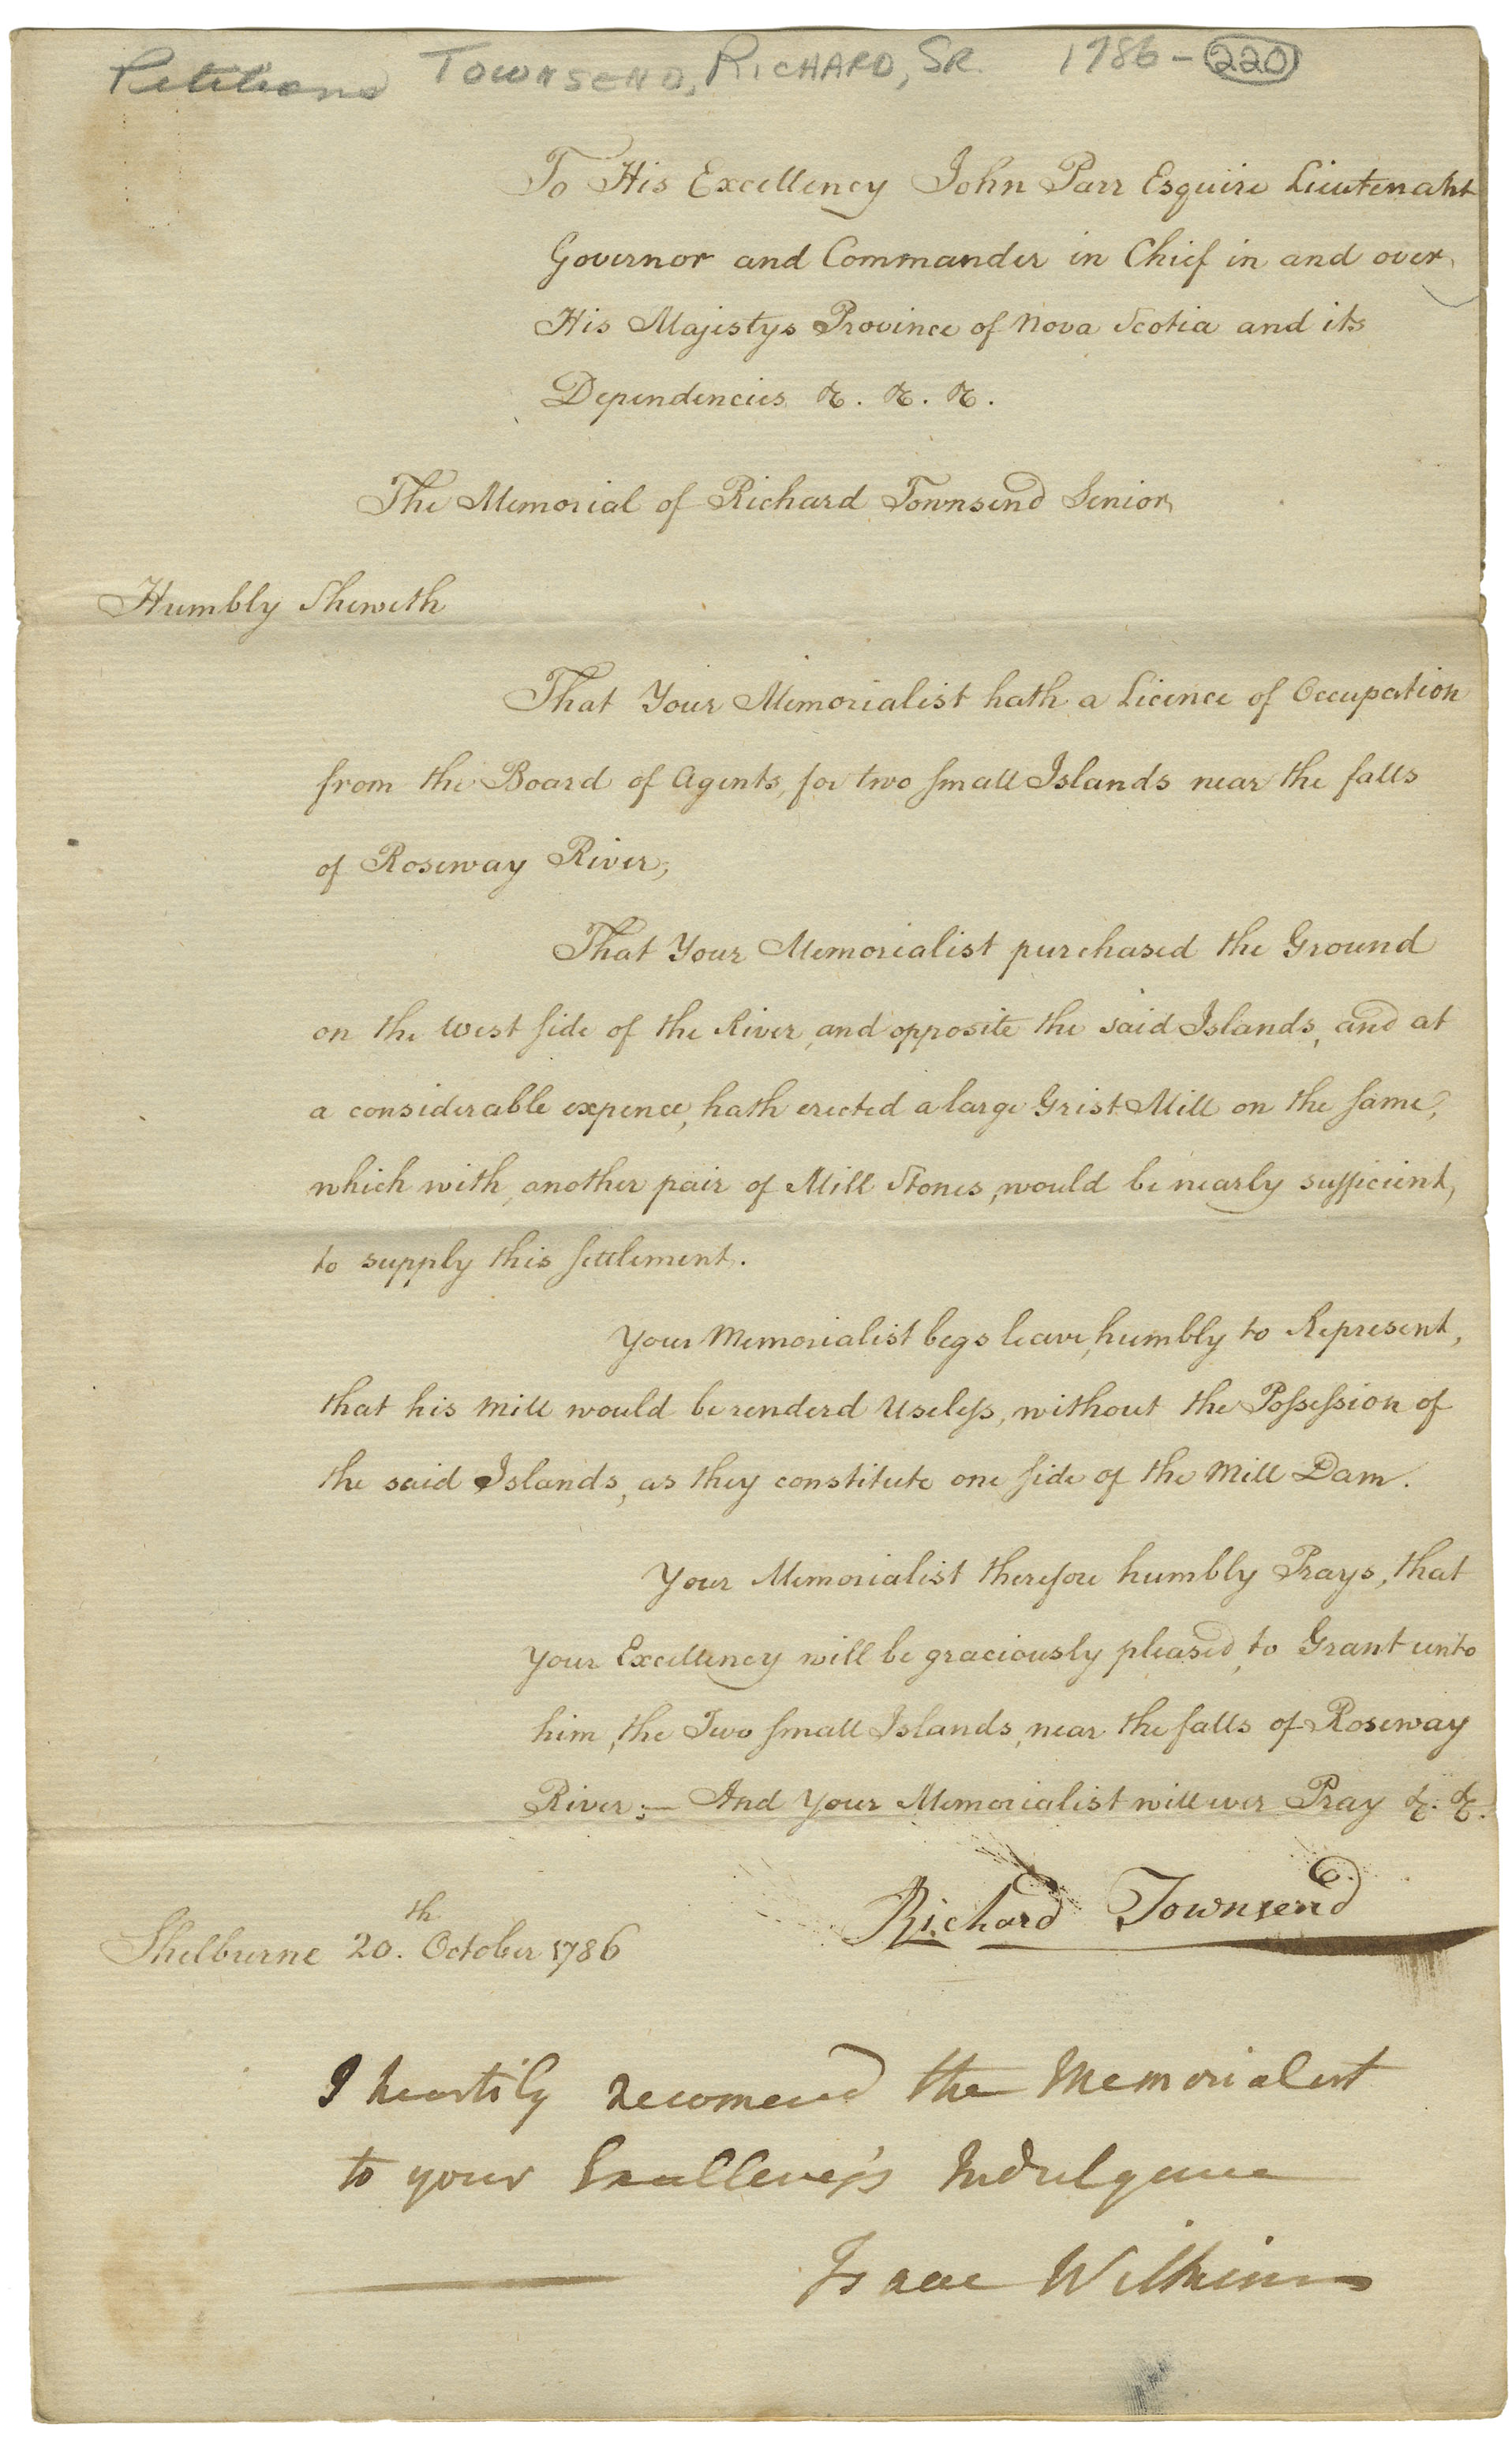 Petitions TOWNSEND, RICHARD, SR. 1786 - 220
To His Excellency John Parr Esquire Lieutenant
Governor and Commander in Chief in and over
His Majestys Province of Nova Scotia and its
Dependencies &. &. &.
The Memorial of Richard Townsend Senior
Humbly Sheweth
That Your Memorialist hath a Licence of Occupation
from the Board of Agents, for two small Islands near the falls
of Roseway River,
That Your Memorialist purchased the Ground
on the West side of the River, and opposite the said Islands, and at
a considerable expence, hath erected a large Grist Mill on the same,
which with, another pair of Mill Stones, would be nearly sufficient,
to supply this settlement.
Your Memorialist begs leave, humbly to Represent,
that his Mill would be renderd Useless, without the Possession of
the said Islands, as they constitute one side of the Mill Dam.
Your Memorialist therefore humbly Prays, that
Your Excellency will be graciously pleased, to Grant unto
him, the Two small Islands, near the falls of Roseway
River;— And Your Memorialist will ever Pray &. &.
Richard Townsend
Shelburne 20.th October 1786
I heartily recomend the Memorialist
to your Excellency's Indulgence
Isaac Wilkins